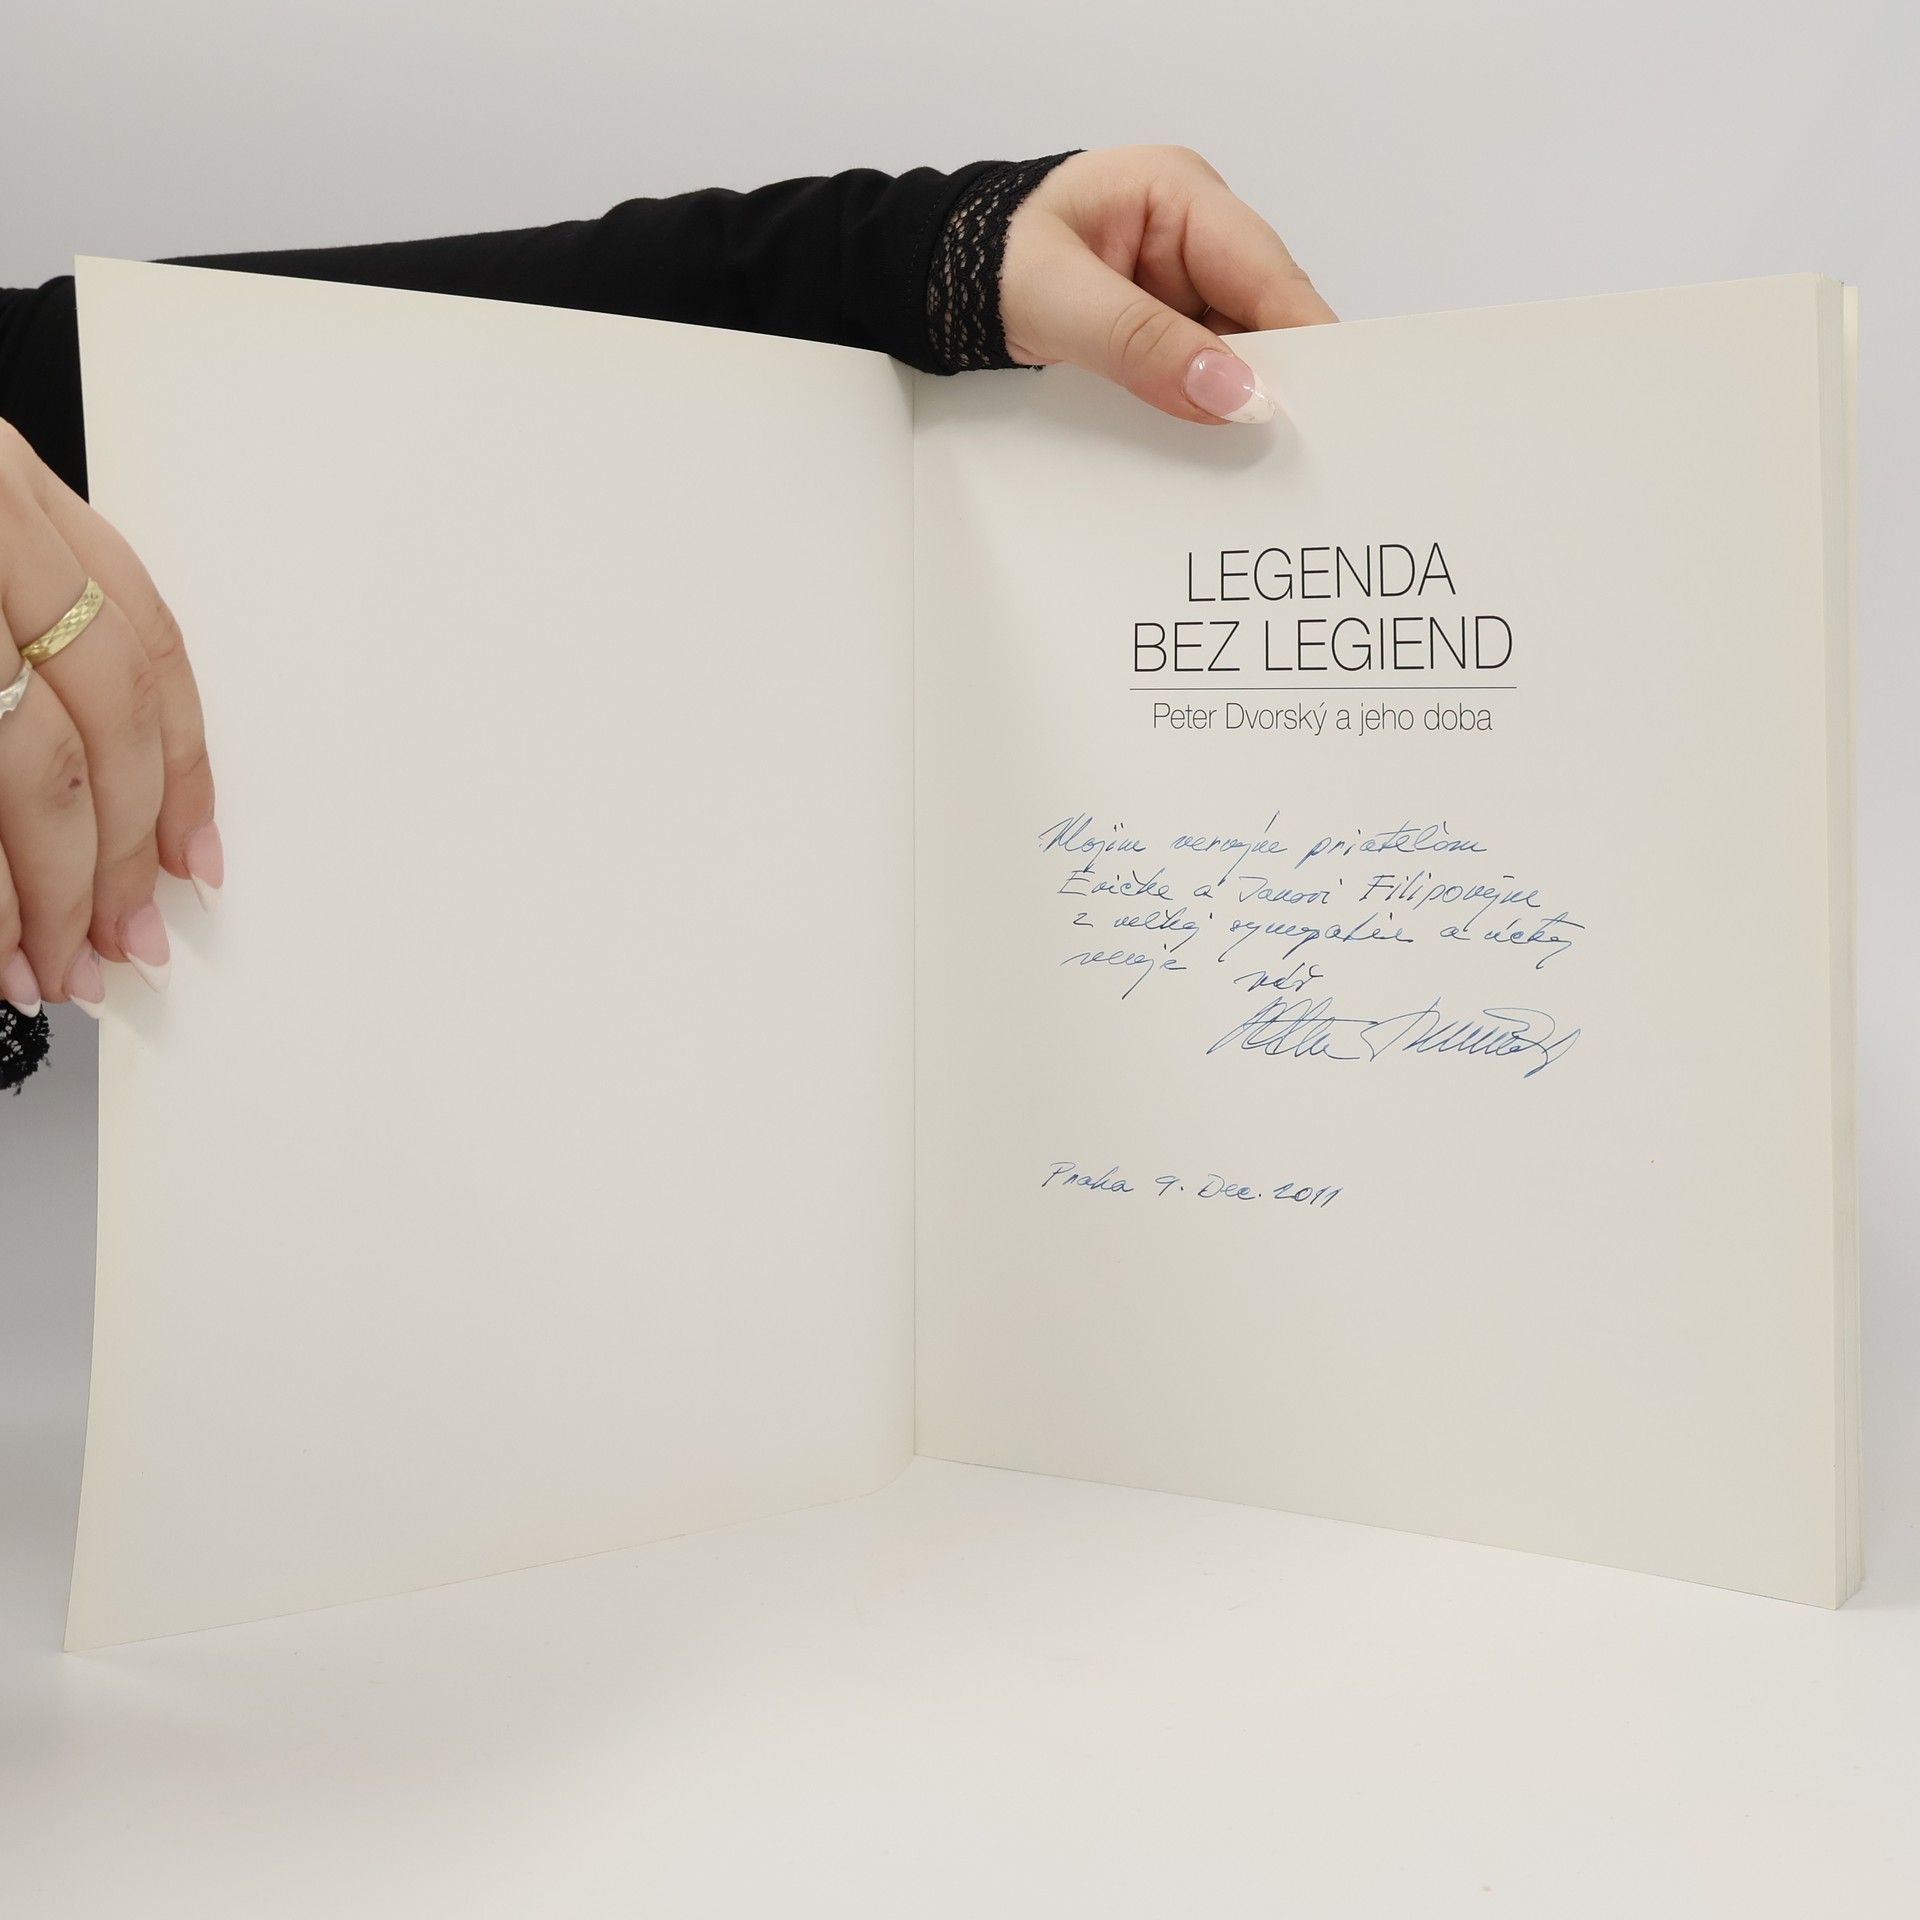 LEGENDA
BEZ LEGIEND
Peter Dvorský a jeho doba
Mojim verným priateľom
Evičke a Janovi Filipovým
z veľkej sympatie a úcty
venuje váš
Praha 9. Dec. 2011